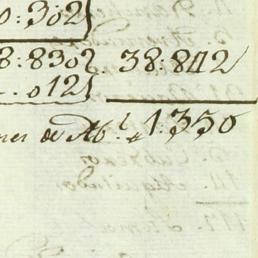 0:302
8:830 38:842
-.012
nes de Ab.l 1.350